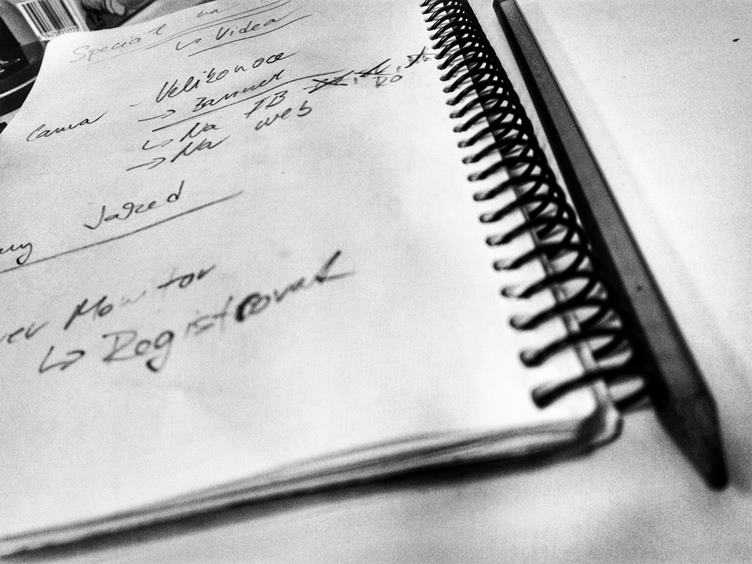 Special na
↳ Videa
Canva - Velikonoce
→ Banner
↳ Na FB
→ Na web
Po
Jared
Monitor
↳ Registrovat